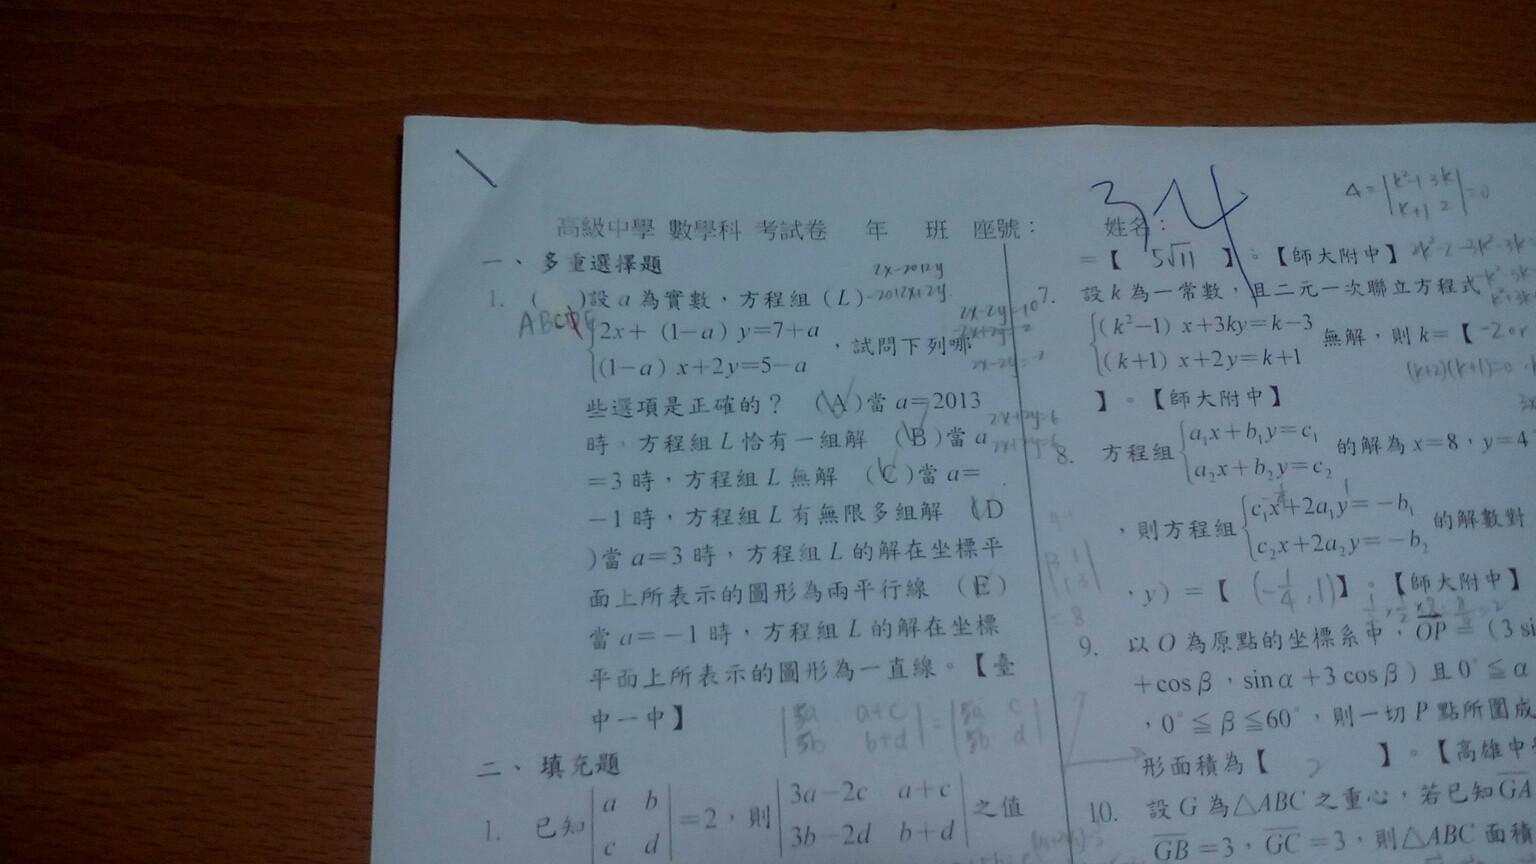 高級中學 數學科 考試卷 年 班 座號： 姓名：
34
一、多重選擇題
2x-2012y
-2012x+2y
1. ( )設 a 為實數，方程組 (L)
ABCDE
2x+ (1-a) y=7+a
(1-a) x+2y=5-a
，試問下列哪
些選項是正確的？ (A)當 a=2013
時，方程組 L 恰有一組解 (B)當 a
=3 時，方程組 L 無解 (C)當 a=
-1 時，方程組 L 有無限多組解 (D
)當 a=3 時，方程組 L 的解在坐標平
面上所表示的圖形為兩平行線 (E)
當 a=-1 時，方程組 L 的解在坐標
平面上所表示的圖形為一直線。【臺
中一中】
2x-2y=10
2x-2y=-2
2x+2y=6
2x+2y=6
|3a a+c| = |3a c|
|3b b+d| |3b d|
二、填充題
1. 已知
|a b|
|c d|
=2，則
|3a-2c a+c|
|3b-2d b+d|
之值
Δ=|k²-1 3k|=0
|k+1 2|
=【 5√11 】。【師大附中】
7. 設 k 為一常數，且二元一次聯立方程式
(k²-1) x+3ky=k-3
(k+1) x+2y=k+1
無解，則 k=【 -2 or
(k+2)(k+1)=0
】。【師大附中】
8. 方程組
a₁x+b₁y=c₁
a₂x+b₂y=c₂
的解為 x=8，y=4
，則方程組
c₁x+2a₁y=-b₁
c₂x+2a₂y=-b₂
的解數對
，y) =【 (-1/4, 1)】。【師大附中】
9. 以 O 為原點的坐標系中，OP = (3 si
+cos β，sin α+3 cos β) 且 0°≦α
，0°≦β≦60°，則一切 P 點所圖成
形面積為【 】。【高雄中
10. 設 G 為△ABC 之重心，若已知 GA
GB=3，GC=3，則△ABC 面積